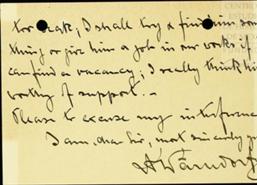 too late, I shall try & find him some
thing, or give him a job in our works if
can find a vacancy; I really think his
worthy of support. —
Please to excuse my interference
I am, dear Sir, most sincerely yo